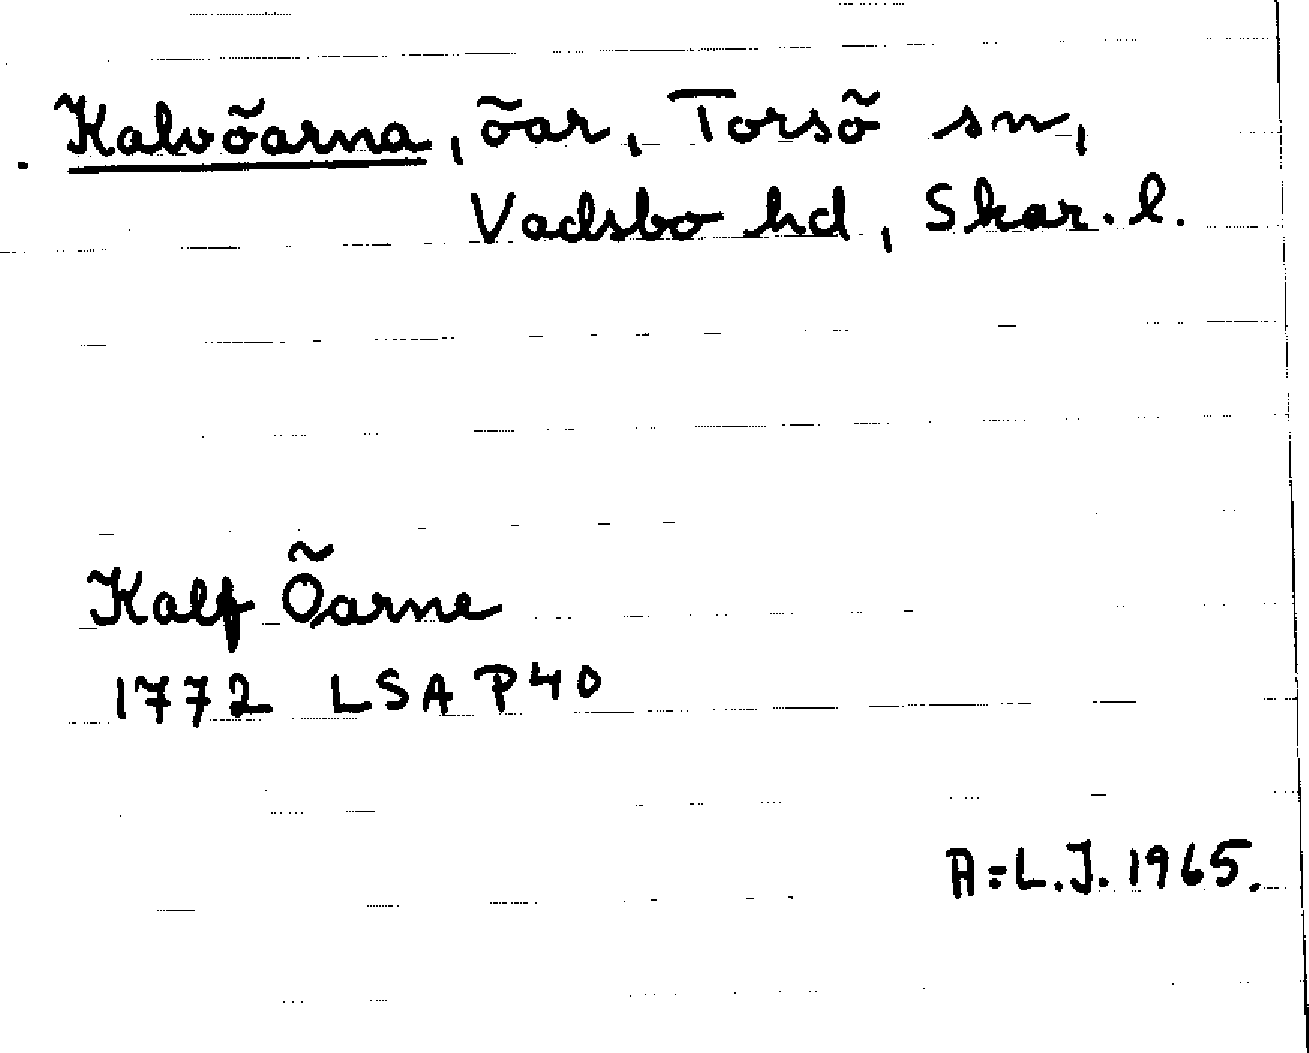 Kalvöarna, öar, Torsö sn,
Vadsbo hd, Skar. l.
Kalf Öarne
1772 LSA P40
A-L.J. 1965.